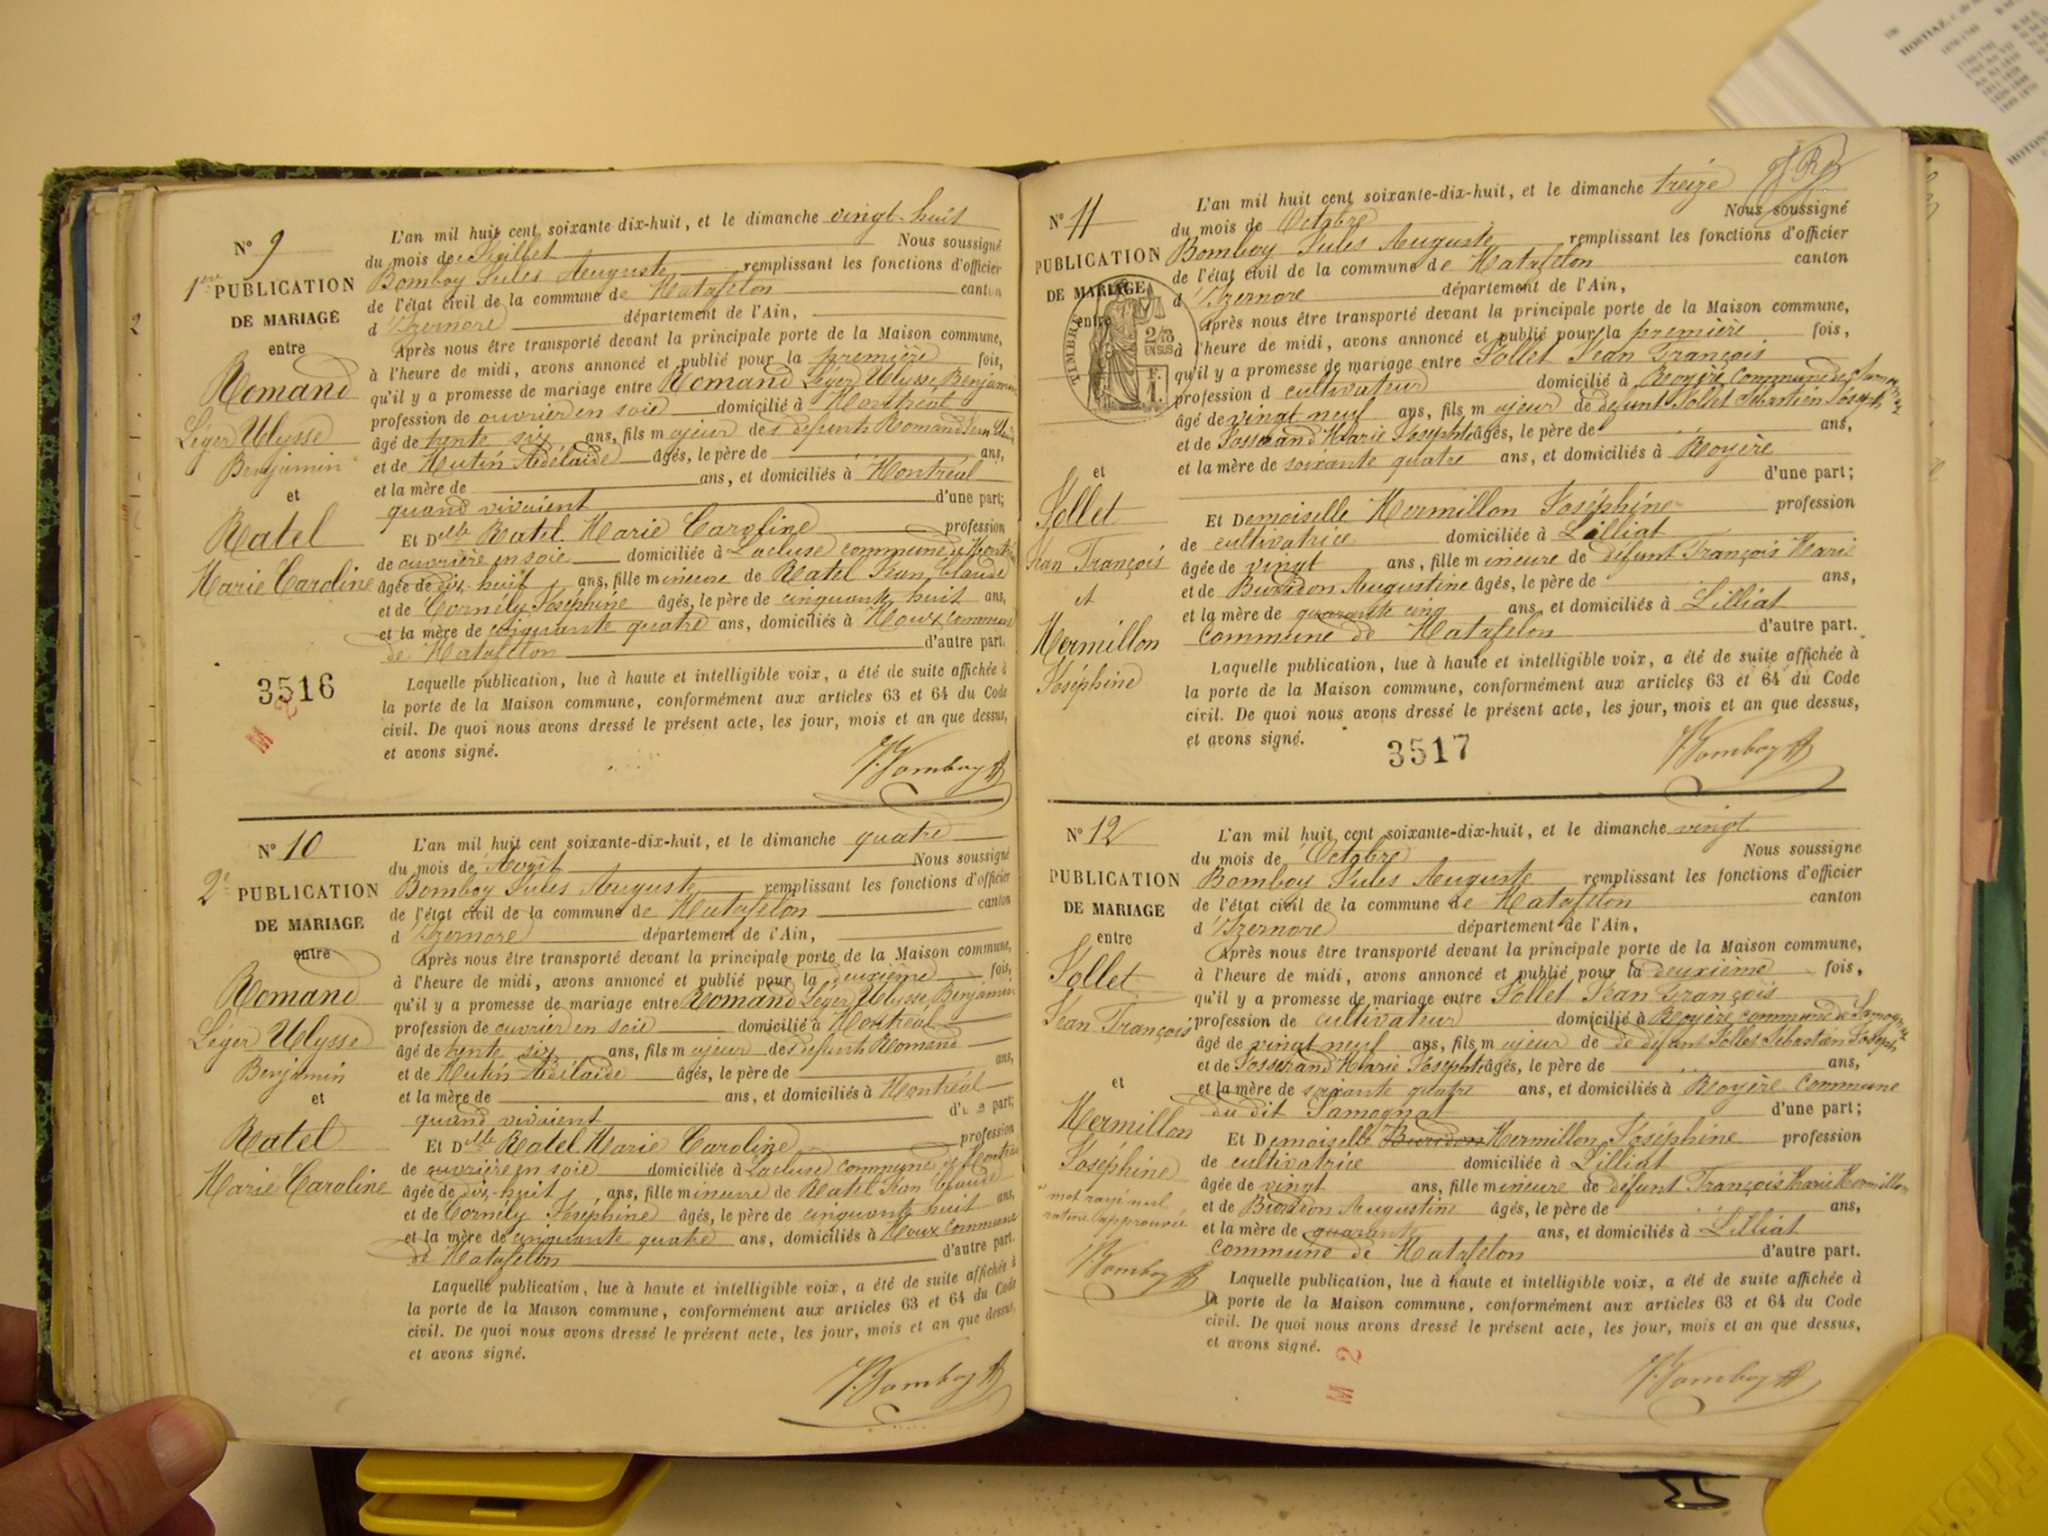 N° 9
1ere PUBLICATION
DE MARIAGE
entre
Romand
Léger Ulysse
Benjamin
et
Ratel
Marie Caroline
3516
M 2
L'an mil huit cent soixante dix-huit, et le dimanche vingt-huit
du mois de Juillet Nous soussigné
Bomboy Jules Auguste remplissant les fonctions d'officier
de l'état civil de la commune de Matafelon canton
d'Izernore département de l'Ain,
Après nous être transporté devant la principale porte de la Maison commune,
à l'heure de midi, avons annoncé et publié pour la première fois,
qu'il y a promesse de mariage entre Romand Léger Ulysse Benjamin
profession de ouvrier en soie domicilié à Montréal
âgé de trente six ans, fils majeur des défunts Romand Jean
et de Mutin Adélaïde âgés, le père de ans,
et la mère de ans, et domiciliés à Montréal
quand vivaient d'une part;
Et Dlle Ratel Marie Caroline profession
de ouvrière en soie domiciliée à Lacluse commune de
âgée de dix-huit ans, fille mineure de Ratel Jean Claude
et de Cornély Joséphine âgés, le père de cinquante huit ans,
et la mère de cinquante quatre ans, domiciliés à Moux commune
de Matafelon d'autre part.
Laquelle publication, lue à haute et intelligible voix, a été de suite affichée à
la porte de la Maison commune, conformément aux articles 63 et 64 du Code
civil. De quoi nous avons dressé le présent acte, les jour, mois et an que dessus,
et avons signé.
J. Bomboy
N° 10
2e PUBLICATION
DE MARIAGE
entre
Romand
Léger Ulysse
Benjamin
et
Ratel
Marie Caroline
L'an mil huit cent soixante-dix-huit, et le dimanche quatre
du mois de Août Nous soussigné
Bomboy Jules Auguste remplissant les fonctions d'officier
de l'état civil de la commune de Matafelon canton
d'Izernore département de l'Ain,
Après nous être transporté devant la principale porte de la Maison commune,
à l'heure de midi, avons annoncé et publié pour la deuxième fois,
qu'il y a promesse de mariage entre Romand Léger Ulysse Benjamin
profession de ouvrier en soie domicilié à Montréal
âgé de trente six ans, fils majeur des défunts Romand
et de Mutin Adélaïde âgés, le père de ans,
et la mère de ans, et domiciliés à Montréal
quand vivaient d'une part;
Et Dlle Ratel Marie Caroline profession
de ouvrière en soie domiciliée à Lacluse commune de
âgée de dix-huit ans, fille mineure de Ratel Jean Claude
et de Cornély Joséphine âgés, le père de cinquante huit ans,
et la mère de cinquante quatre ans, domiciliés à Moux commune
de Matafelon d'autre part.
Laquelle publication, lue à haute et intelligible voix, a été de suite affichée à
la porte de la Maison commune, conformément aux articles 63 et 64 du Code
civil. De quoi nous avons dressé le présent acte, les jour, mois et an que dessus,
et avons signé.
J. Bomboy
N° 11
PUBLICATION
DE MARIAGE
entre
TIMBRE
2/10
EN SUS
et
Jollet
Jean François
et
Mermillon
Joséphine
L'an mil huit cent soixante-dix-huit, et le dimanche treize
du mois de Octobre Nous soussigné
Bomboy Jules Auguste remplissant les fonctions d'officier
de l'état civil de la commune de Matafelon canton
d'Izernore département de l'Ain,
Après nous être transporté devant la principale porte de la Maison commune,
à l'heure de midi, avons annoncé et publié pour la première fois,
qu'il y a promesse de mariage entre Jollet Jean François
profession d cultivateur domicilié à Royère commune de
âgé de vingt neuf ans, fils majeur de défunt Jollet Sébastien Joseph
et de Josserand Marie Josephte âgés, le père de ans,
et la mère de soixante quatre ans, et domiciliés à Royère
d'une part;
Et Demoiselle Mermillon Joséphine profession
de cultivatrice domiciliée à Lilliat
âgée de vingt ans, fille mineure de défunt François Marie
et de Buridon Augustine âgés, le père de ans,
et la mère de quarante cinq ans, et domiciliés à Lilliat
commune de Matafelon d'autre part.
Laquelle publication, lue à haute et intelligible voix, a été de suite affichée à
la porte de la Maison commune, conformément aux articles 63 et 64 du Code
civil. De quoi nous avons dressé le présent acte, les jour, mois et an que dessus,
et avons signé.
3517
J. Bomboy
N° 12
PUBLICATION
DE MARIAGE
entre
Jollet
Jean François
et
Mermillon
Joséphine
mot rayé nul
rature approuvée
J. Bomboy
L'an mil huit cent soixante-dix-huit, et le dimanche vingt
du mois de Octobre Nous soussigné
Bomboy Jules Auguste remplissant les fonctions d'officier
de l'état civil de la commune de Matafelon canton
d'Izernore département de l'Ain,
Après nous être transporté devant la principale porte de la Maison commune,
à l'heure de midi, avons annoncé et publié pour la deuxième fois,
qu'il y a promesse de mariage entre Jollet Jean François
profession de cultivateur domicilié à Royère commune de Samognat
âgé de vingt neuf ans, fils majeur de de défunt Jollet Sébastien Joseph
et de Josserand Marie Josephte âgés, le père de ans,
et la mère de soixante quatre ans, et domiciliés à Royère commune
du dit Samognat d'une part;
Et Demoiselle Buridon Mermillon Joséphine profession
de cultivatrice domiciliée à Lilliat
âgée de vingt ans, fille mineure de défunt François Marie Mermillon
et de Buridon Augustine âgés, le père de ans,
et la mère de quarante ans, et domiciliés à Lilliat
commune de Matafelon d'autre part.
Laquelle publication, lue à haute et intelligible voix, a été de suite affichée à
la porte de la Maison commune, conformément aux articles 63 et 64 du Code
civil. De quoi nous avons dressé le présent acte, les jour, mois et an que dessus,
et avons signé.
M 2
J. Bomboy